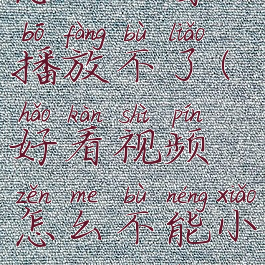 bō fàng bù liǎo
播放不了(
hǎo kàn shì pín
好看视频
zěn me bù néng xiǎo
怎么不能小